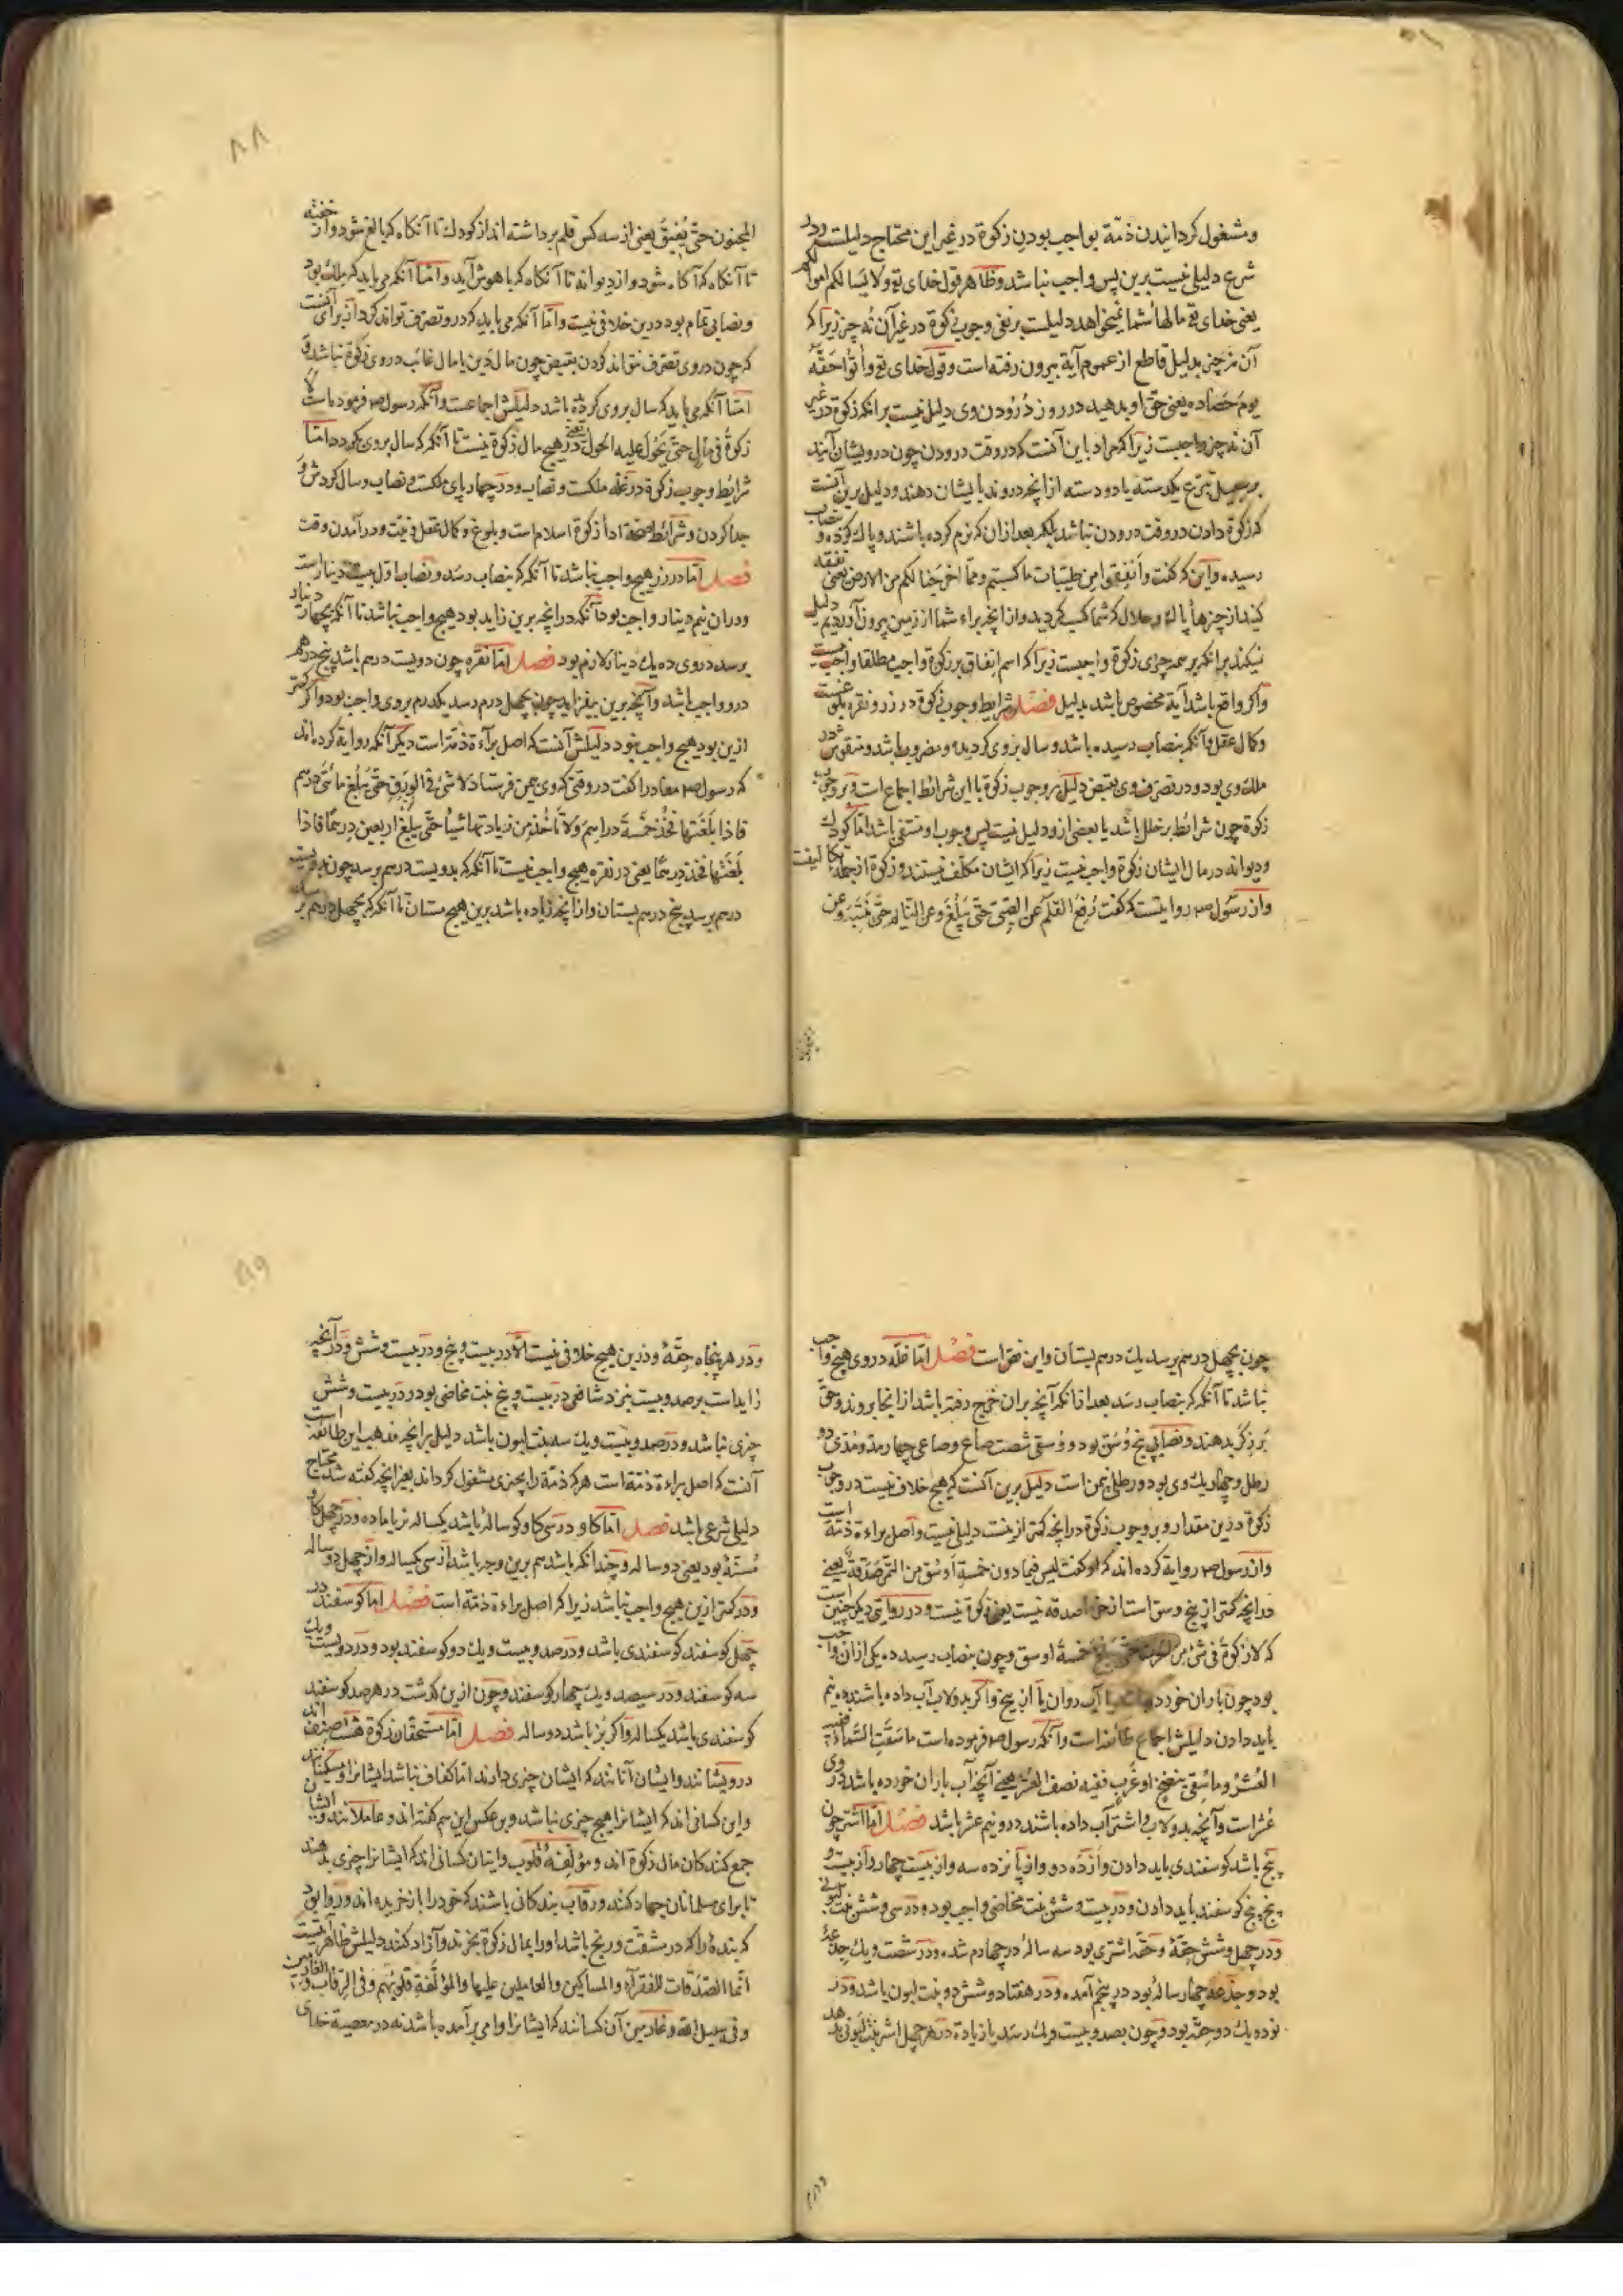 ومشغول کردانیدن ذمّة بواجب بودن زکوة در غیر این محتاج دلیلست ودر
شرع دلیلی نیست برین پس واجب نباشد وظاهر قول خدای تع ولا یسالکم اموالکم
یعنی خدای تع مالهاء شما نمیخواهد دلیلست بر نفی وجوب زکوة در غیر آن نه چیز زیرا که
آن نه چیز بدلیل قاطع از عموم آیة بیرون رفته است وقول خدای تع وأتوا حقّه
یوم حَصاده یعنی حق او بدهید در روز دُرودن وی دلیل نیست برانکه زکوة در غیر
آن نه چیز واجبست زیرا که مراد باین آنست که در وقت درودن چون درویشان آیند
بر سبیل تبرّع یکدسته یا دو دسته از انچه دروند بایشان دهند ودلیل برین آنست
که زکوة دادن در وقت درودن نباشد بلکه بعد ازان که نرم کرده باشند وپاك کرده و بنصاب
رسیده واین که گفت وأنفِقوا من طیّبات ما کسبتم وممّا اخرجنا لکم من الارض یعنی نفقه
کنید از چیزهاء پاك وحلال که شما کسب کردید واز انچه براء شما از زمین بیرون آوردیم دلیل
نیکند برانکه بر همه چیزی زکوة واجبست زیرا که اسم انفاق بر زکوة واجب مطلقا واقع نیست
واگر واقع باشد آیة مخصوص باشد بدلیل فصل شرایط وجوب زکوة در زر ونقره بلوغست
وکمال عقل وآنکه بنصاب رسیده باشد وسال بروی کردیده ومضروب باشد ومنقوش ودر
ملك وی بود ودر تصرف وی بقبض دلیل بر وجوب زکوة با این شرائط اجماع است وبر وجوب
زکوة چون شرائط بر خلل باشد یا بعضی ازو دلیل نیست پس وجوب او منتفی باشد امّا کودك
ودیوانه در مال ایشان زکوة واجب نیست زیرا که ایشان مکلّف نیستند وزکوة از جمله تکالیفست
واز رسول ص روایتست که گفت رُفِعَ القلم عن الصبیّ حتّی یَبلُغَ وعن النّائم حتّی یَنتَبِه وعن
۸۸
المجنون حتّی یُفیقَ یعنی از سه کس قلم برداشته اند از کودك تا آنکاه که بالغ شود واز خفته
تا آنکاه که آکاه شود واز دیوانه تا آنکاه که با هوش آید وامّا آنکه می باید که ملك بود
ونصابی تمام بود درین خلافی نیست وامّا آنکه می باید که درو تصرّف تواند کرد از برای آنست
که چون در وی تصرّف نتواند کردن بقبض چون مال دَین یا مال غائب در وی زکوة نباشد و
امّا آنکه می باید که سال بروی کردیده باشد دلیلش اجماعست وآنکه رسول ص فرموده است لا
زکوةَ فی مالٍ حتّی یَحُولَ علیه الحَول یعنی در هیچ مال زکوة نیست تا آنکه که سال بروی بکردد وامّا
شرایط وجوب زکوة در غلّه ملکست ونصاب ودر چهار پای ملکست ونصاب وسال کردش و
جدا کردن وشرائط صحّة اداء زکوة اسلام است وبلوغ وکمال عقل ونیّت ودر آمدن وقت
فصل امّا در زر هیچ واجب نباشد تا آنکه که بنصاب رسد ونصاب اوّل بیست دینارست
ودران نیم دینار واجب بود وآنکه در انچه برین زاید بود هیچ واجب نباشد تا آنکه بچهار دینار
برسد در وی ده یك دینار لازم بود فصل امّا نقره چون دویست درم باشد پنج درهم
درو واجب باشد وآنچه برین بیفزاید چون بچهل درم رسد یکدرم بروی واجب بود واگر کمتر
ازین بود هیچ واجب نبود دلیلش آنست که اصل براءة ذمّه است دیگر آنکه روایة کرده اند
که رسول ص معاد را گفت در وقتی که وی بیمن فرستاد لا شیء فی الوَرِق حتّی یَبلُغ مائتی درهم
فاذا بلغتها فخُذ خمسة دراهم ولا تأخذ من زیادتها شیئا حتّی یبلغ اربعین درهما فاذا
بلغتها فخذ درهمًا یعنی در نقره هیچ واجب نیست تا آنکه که بدویست درهم برسد چون بدویست
درهم برسد پنج درهم بستان وازانچه زیاده باشد برین هیچ مستان تا آنکه که بچهل درهم برسد
چون بچهل درهم برسد یك درهم بستان واین نصّ است فصل امّا غلّه در وی هیچ واجب
نباشد تا آنکه که بنصاب رسد بعد ازانکه آنچه بران خرج رفته باشد از انجا بروند وحق
بَرزِگر بدهند ونصابی پنج وُسق بود ووُسقی شصت صاع وصاعی چهار مد ومدّی دو
رطل وچهار یك وی بود ورطل نیم من است دلیل برین آنست که هیچ خلاف نیست در وجوب
زکوة درین مقدار وبر وجوب زکوة در انچه کمتر ازینست دلیلی نیست واصل براءة ذمّه است
واز رسول ص روایة کرده اند که او گفت لیس فیما دون خمسة اوسُق من التّمر صدقةٌ یعنی
در انچه کمتر از پنج وسق است از خرما صدقه نیست یعنی زکوة نیست ودر روایتی دیکر چنین است
که لا زکوةَ فی شیء مِن الحرث حتّی یبلغ خمسة اوسق وچون بنصاب رسید ده یکی ازان واجب
بود چون باران خورده باشد یا آب روان یا از بیخ واکر بدولاب آب داده باشند ده نیم
باید دادن دلیلش اجماع طائفه است وآنکه رسول ص فرموده است ما سَقَتِ السّماءُ ففیه
العُشرُ وما سُقِی بنضحٍ او غَربٍ ففیه نصف العُشر یعنی آنچه آب باران خورده باشد در وی
عُشر است وآنچه بدولاب واشتر آب داده باشند درو نیم عشر باشد فصل امّا اشتر چون
پنج باشد کوسفندی باید دادن واز ده دو واز پانزده سه واز بیست چهار واز بیست و
پنج پنج کوسفند باید دادن ودر بیست وشش بنت مخاضی واجب بود ودر سی وشش بنت لبونی
ودر چهل وشش حِقّة وحقّه اشتری بود سه ساله در چهارم شده ودر شصت ویك جذعة
بود وجذعه چهار ساله بود در پنجم آمده ودر هفتاد وشش دو بنت لبون باشد ودر
نود ویك دو حِقّه بود وچون بصد وبیست ویك رسد یا زیادة در هر چهل اشتر بنت لبونی بدهد
۸۹
ودر هر پنجاه حِقّة ودرین هیچ خلافی نیست الّا در بیست وپنج ودر بیست وشش ودر آنچه
زاید است بر صد وبیست نزد شافعی در بیست وپنج بنت مخاضی بود ودر بیست وشش
چیزی نباشد ودر صد وبیست ویك سه بنت لبون باشد دلیل بر انچه مذهب این طائفه است
آنست که اصل براءة ذمّة است هر که ذمّة را بچیزی مشغول کرداند بغیر انچه گفته شد محتاج
دلیلی شرعی باشد فصل امّا کاو در سی کاو کوساله باشد یکساله نر یا ماده ودر چهل کاو
مُسنّة بود یعنی دو ساله وچندانکه باشد هم برین وجه باشد از سی یکساله واز چهل دو ساله
ودر کمتر ازین هیچ واجب نباشد زیرا که اصل براءة ذمّة است فصل امّا کوسفند در
چهل کوسفند کوسفندی باشد ودر صد وبیست ویك دو کوسفند بود ودر دویست ویك
سه کوسفند ودر سیصد ویك چهار کوسفند وچون ازین کذشت در هر صد کوسفند
کوسفندی باشد یکساله واکر بُز باشد دو ساله فصل امّا مستحقان زکوة هشت صنف اند
درویشانند وایشان آنانند که ایشان چیزی دارند امّا کفاف نباشد ایشانرا ومسکینانند
واین کسانی اند که ایشانرا هیچ چیزی نباشد وبر عکس این هم گفته اند وعاملانند وایشان
جمع کنندکان مال زکوة اند ومؤلّفة قلوب وایشان کسانی اند که ایشانرا چیزی بدهند
تا برای مسلمانان جهاد کنند ورقاب بندکانی باشند که خود را باز خریده اند وروا بود
که بندة را که در مشقّت ورنج باشد اورا بمال زکوة بخرند وآزاد کنند دلیلش ظاهر آیتست
انّما الصّدقات للفقرآء والمساکین والعاملین علیها والمؤلّفة قلوبُهم وفی الرّقاب والغارمین
وفی سبیل الله وغارمین آن کسانند که ایشانرا وامی برآمده باشد نه در معصیة خدای